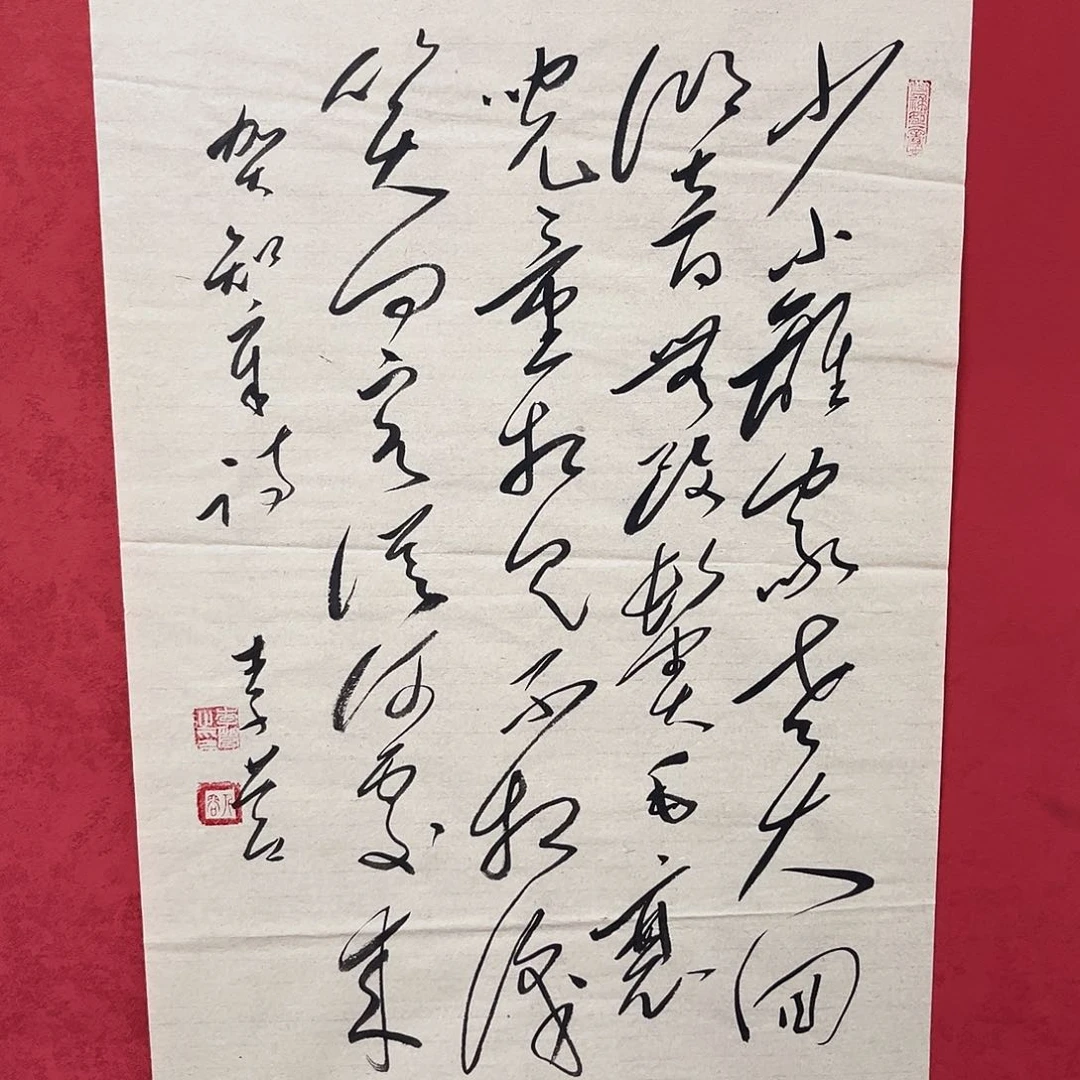 少小離家老大回
鄉音無改鬢毛衰
兒童相見不相識
笑問客從何處來
賀知章詩
李